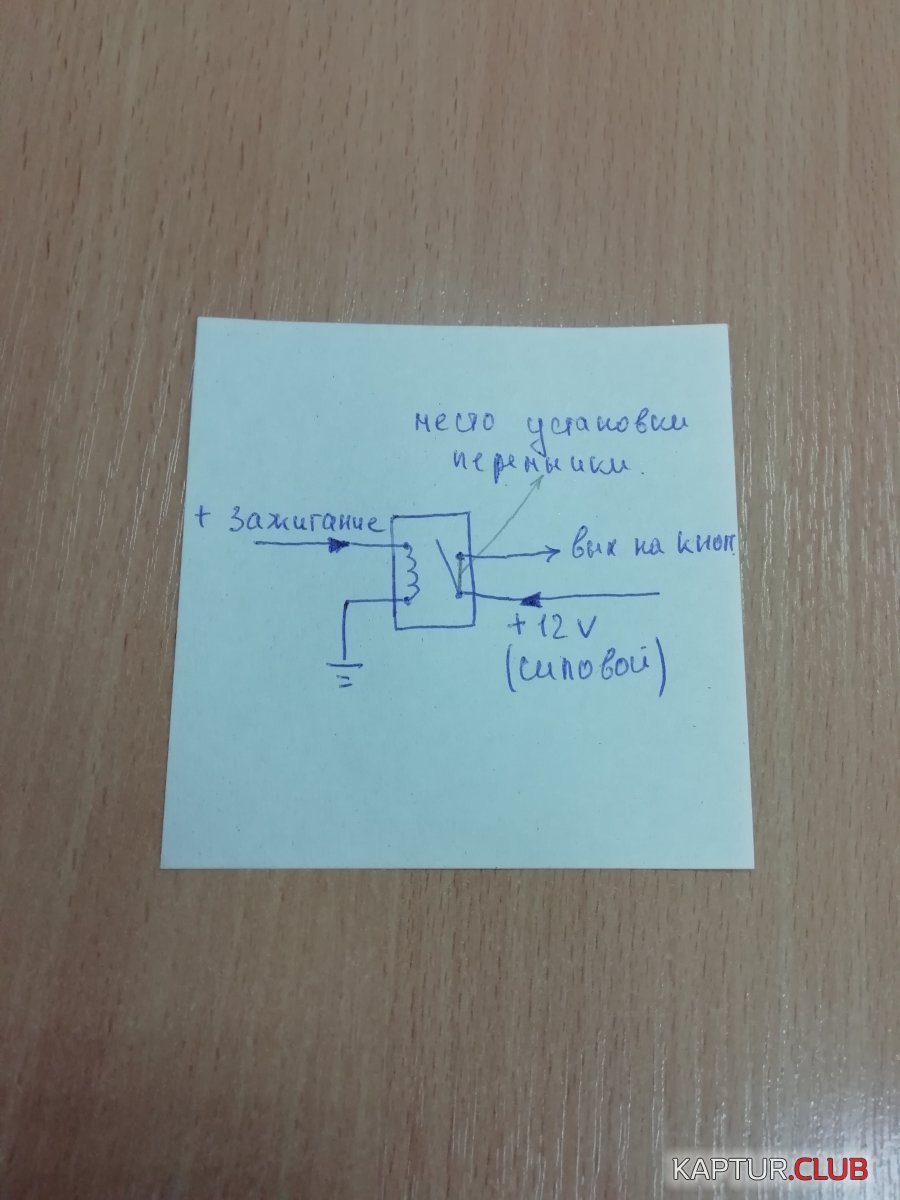 место установки
перемычки.
+ Зажигание
вых на кноп.
+12V
(силовой)
KAPTUR.CLUB